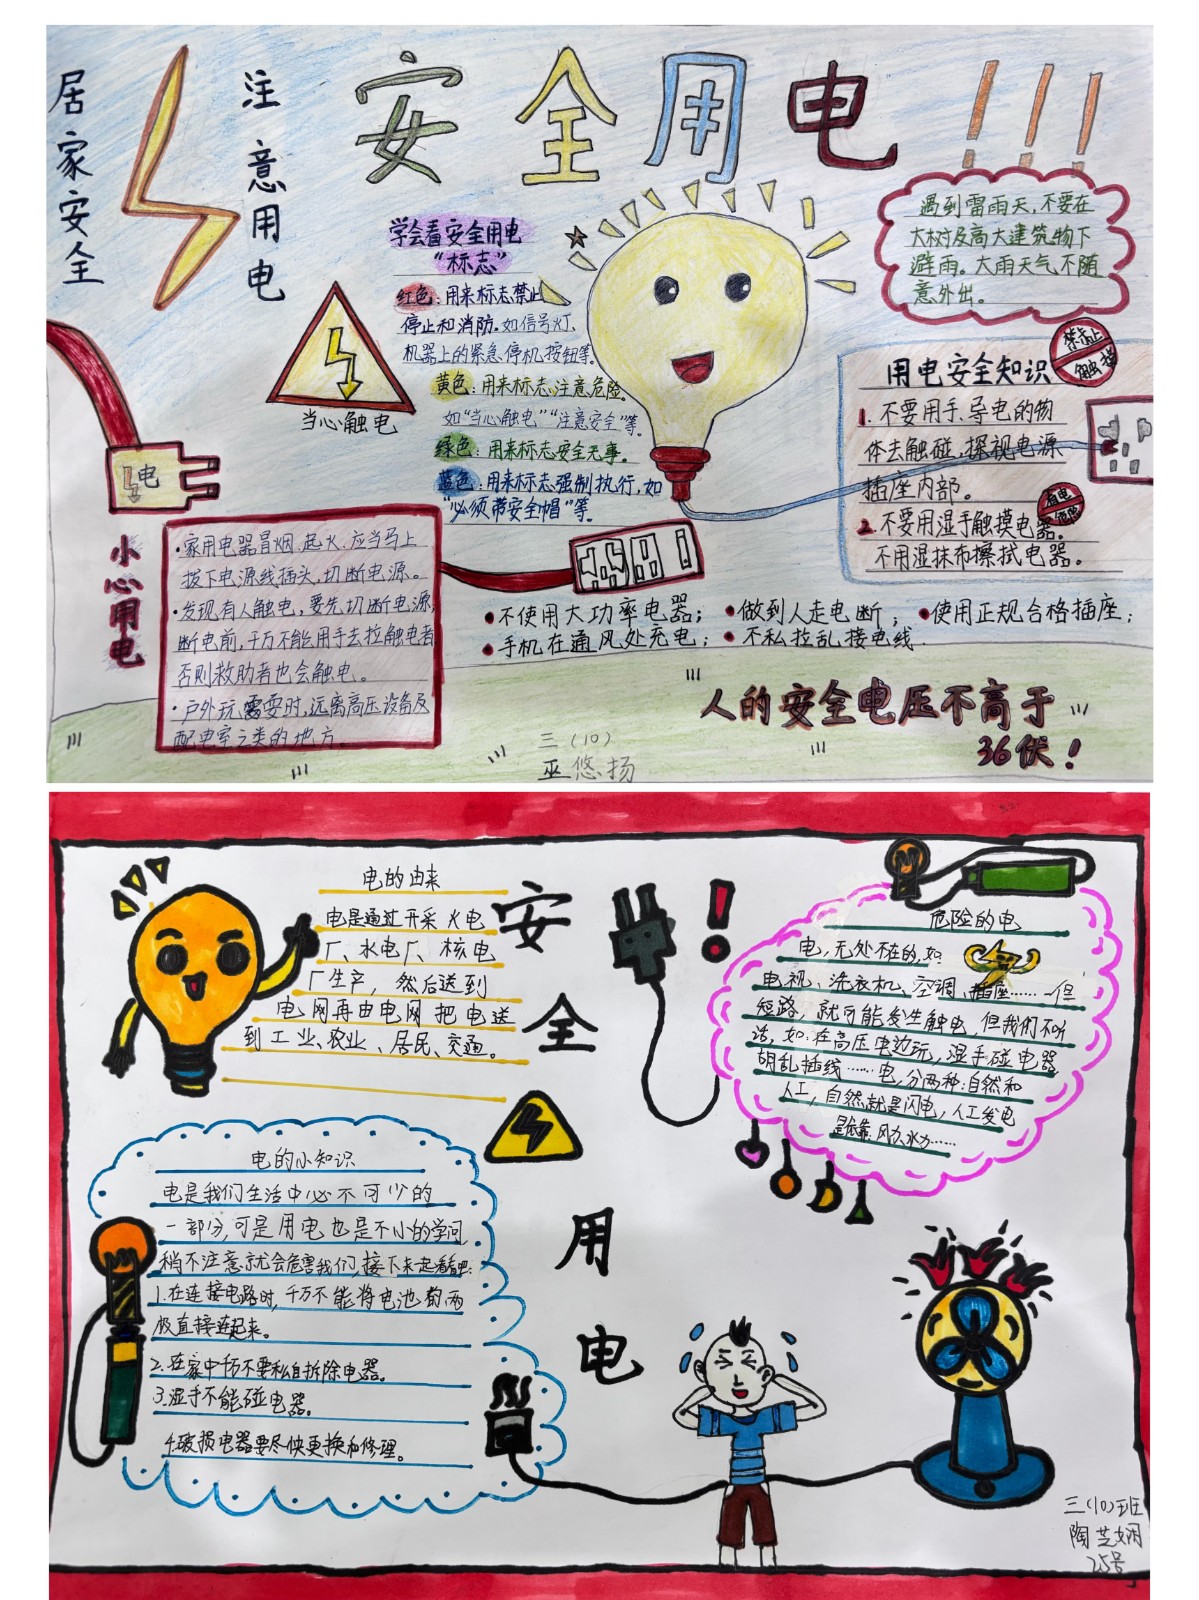 安全用电!!!
居家安全
注意用电
学会看安全用电
“标志”
红色:用来标志禁止
停止和消防。如信号灯、
机器上的紧急停机按钮等。
黄色:用来标志注意危险。
如“当心触电”“注意安全”等。
绿色:用来标志安全无事。
蓝色:用来标志强制执行,如
“必须带安全帽”等。
当心触电
遇到雷雨天,不要在
大树及高大建筑物下
避雨。大雨天气不随
意外出。
用电安全知识
禁止
触摸
1.不要用手、导电的物
体去触碰,探视电源
插座内部。
有电
危险
2.不要用湿手触摸电器。
不用湿抹布擦拭电器。
电
小心用电
•家用电器冒烟.起火.应当马上
拔下电源线插头,切断电源。
•发现有人触电,要先切断电源,
断电前,千万不能用手去拉触电者
否则救助者也会触电。
•户外玩耍时,远离高压设备及
配电室之类的地方。
•不使用大功率电器; •做到人走电断; •使用正规合格插座;
•手机在通风处充电; •不私拉乱接电线.
人的安全电压不高于
36伏!
三(10)
巫悠扬
安全用电
!
电的由来
电是通过开采火电
厂、水电厂、核电
厂生产,然后送到
电网再由电网把电送
到工业、农业、居民、交通。
危险的电
电,无处不在的,如
电视、洗衣机、空调、插座……一但
短路,就可能发生触电,但我们不听
话,如:在高压电边玩,湿手碰电器
胡乱插线……电,分两种:自然和
人工,自然就是闪电,人工发电
是依靠.风力、水力……
电的小知识
电是我们生活中必不可少的
一部分,可是用电也是不小的学问
稍不注意就会危害我们,接下来起看看吧:
1.在连接电路时,千万不能将电池的两
极直接连起来。
2.在家中切不要私自拆除电器。
3.湿手不能碰电器。
4.破损电器要尽快更换和修理。
三(10)班
陶芝娴
25号